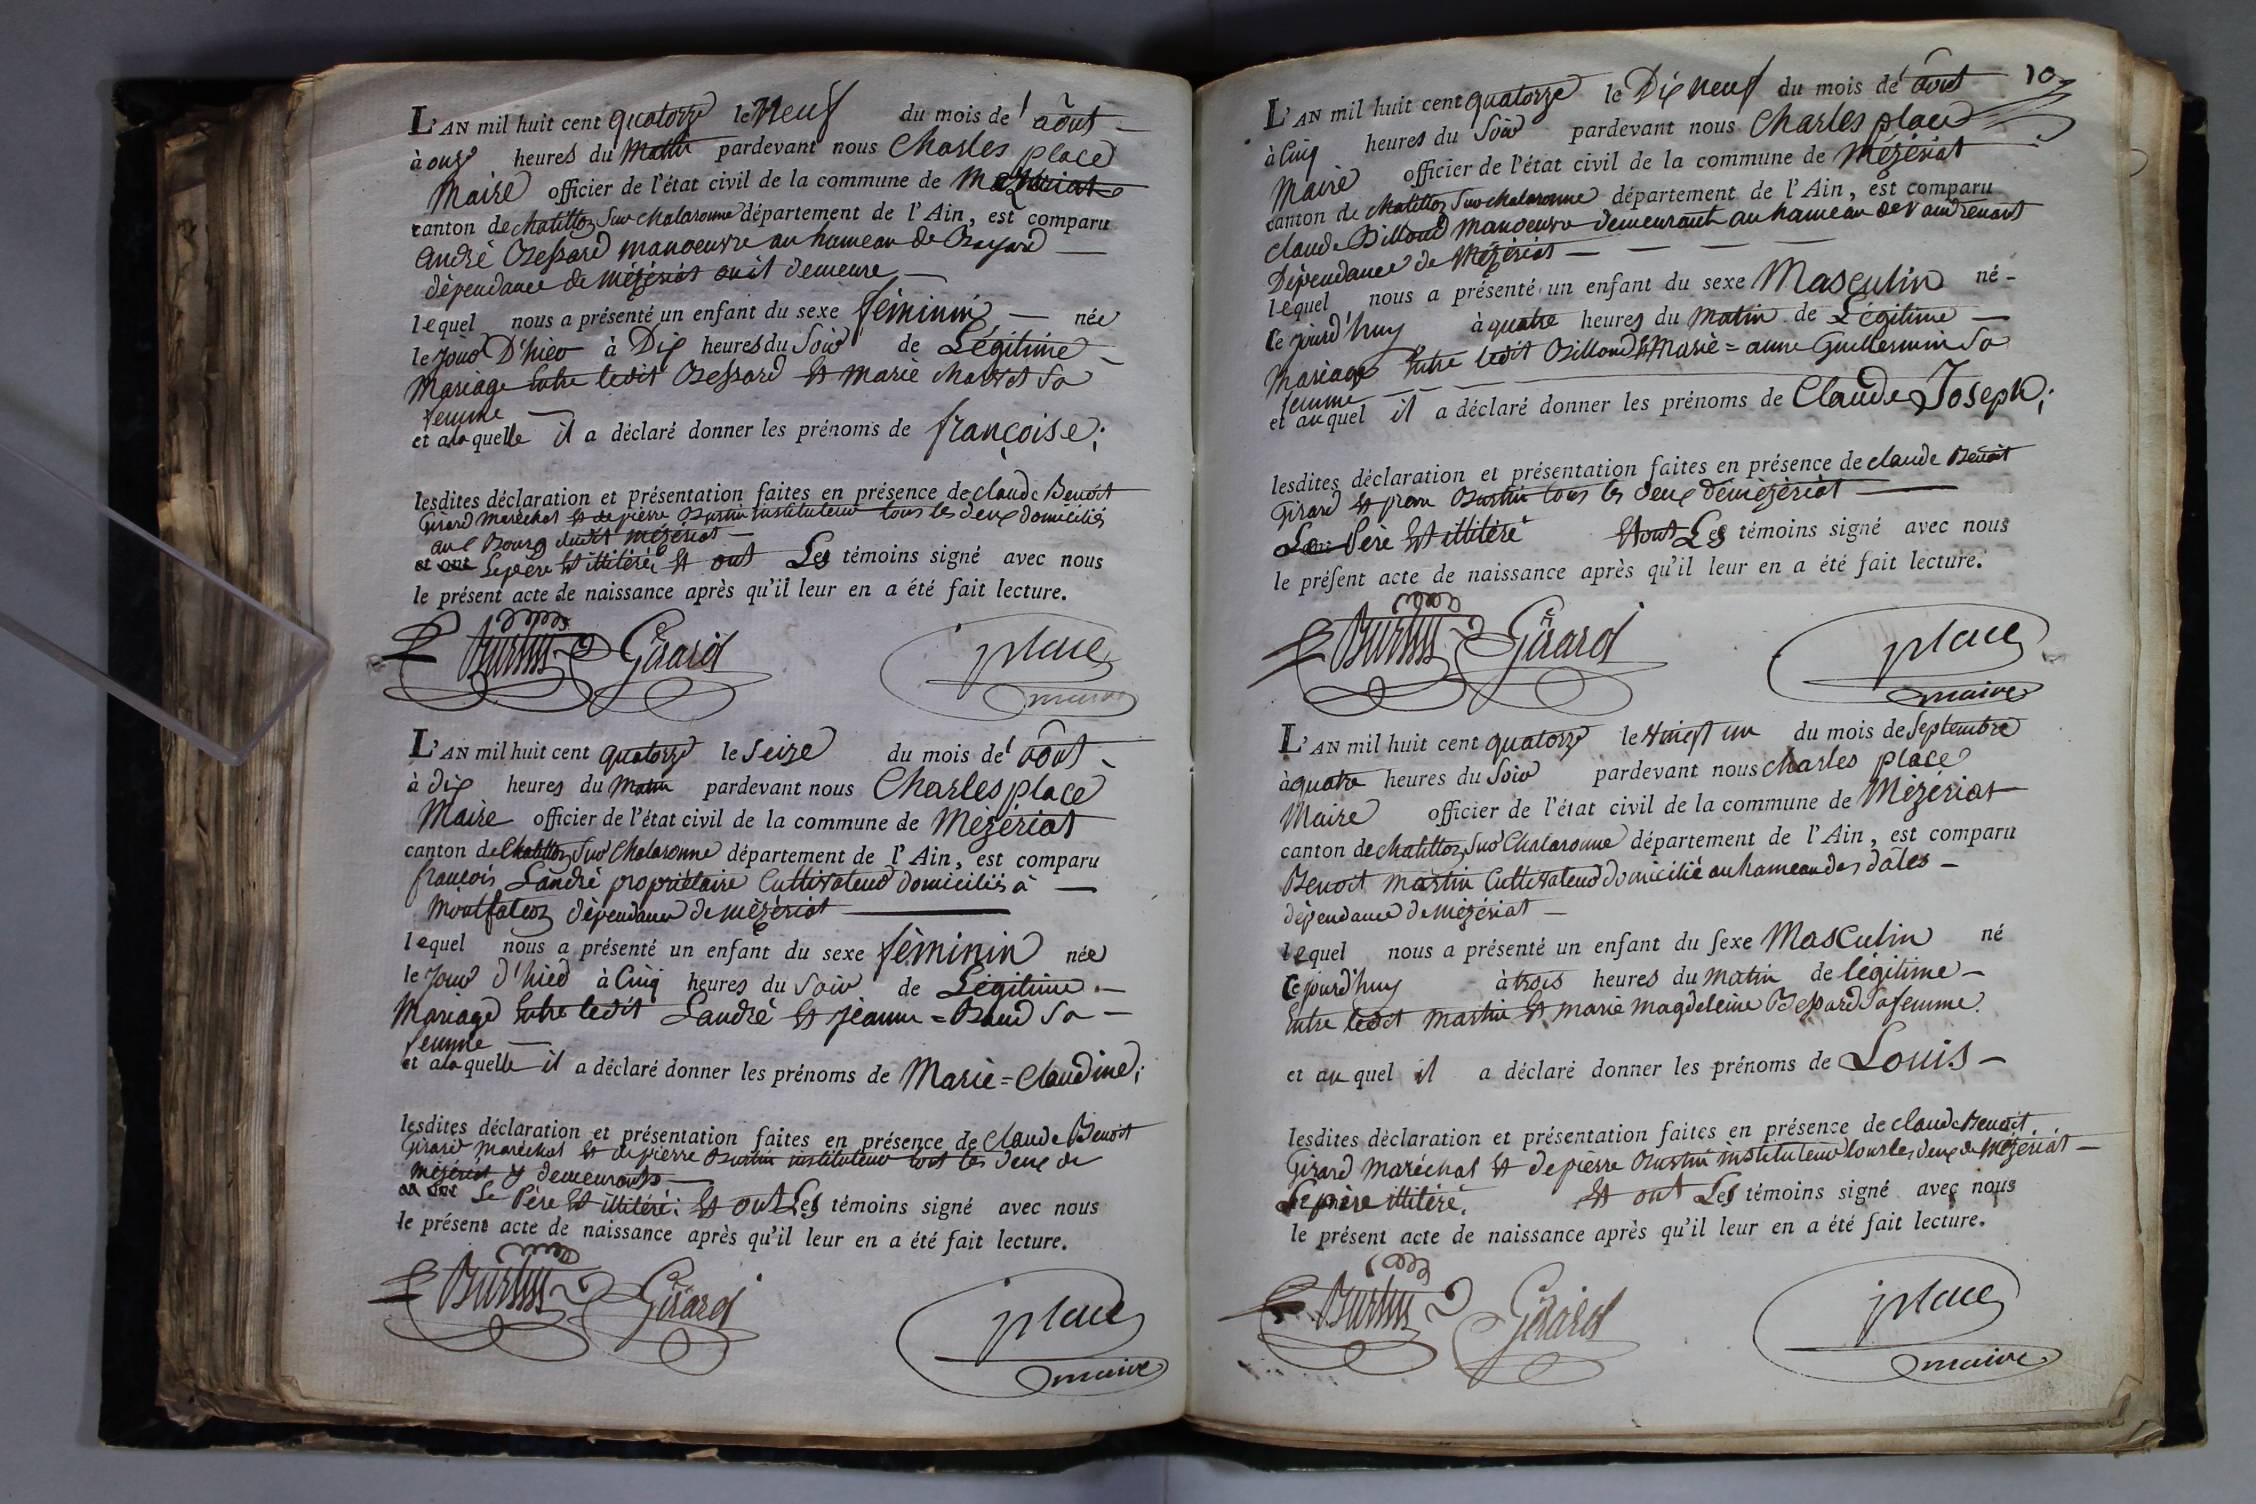 L'AN mil huit cent quatorze le Neuf du mois de août
à onze heures du Matin pardevant nous Charles place
Maire officier de l'état civil de la commune de Mézériat
canton de chatillon Sur chalaronne département de l'Ain, est comparu
andré manoeuvre au hameau de
dépendance de mézériat ou il demeure
lequel nous a présenté un enfant du sexe féminin née
le jour D'hier à Dix heures du Soir de Légitime
Mariage Entre ledit Et Marie Sa
femme
et a la quelle il a déclaré donner les prénoms de françoise;
lesdites déclaration et présentation faites en présence de claude Benoit
Girard Maréchal Et de pierre Burtin instituteur tous les deux domiciliés
au Bourg dudit mézériat
et ont Le père Est illitéré; Et ont Les témoins signé avec nous
le présent acte de naissance après qu'il leur en a été fait lecture.
Burtin Girard place
maire
L'AN mil huit cent quatorze le Seize du mois de août
à dix heures du Matin pardevant nous Charles place
Maire officier de l'état civil de la commune de Mézériat
canton de Chatillon Sur Chalaronne département de l'Ain, est comparu
françois Landré propriétaire Cultivateur domiciliés à
Montfalcon dépendance de mézériat
lequel nous a présenté un enfant du sexe féminin née
le Jour d'hier à Cinq heures du Soir de Légitime
Mariage Entre ledit Landré Et jeanne = Sa
femme
et a la quelle il a déclaré donner les prénoms de Marie = Claudine;
lesdites déclaration et présentation faites en présence de Claude Benoit
Girard Maréchal Et de pierre Burtin instituteur tous les deux de
Mézériat y demeurants
et ont Le Père Est illitéré; Et ont Les témoins signé avec nous
le présent acte de naissance après qu'il leur en a été fait lecture.
Burtin Girard place
maire
10
L'AN mil huit cent quatorze le Dix neuf du mois de août
à Cinq heures du Soir pardevant nous Charles place
Maire officier de l'état civil de la commune de Mézériat
canton de chatillon Sur chalaronne département de l'Ain, est comparu
claude Billoud Manoeuvre demeurant au hameau de
Dépendance de Mézériat
lequel nous a présenté un enfant du sexe Masculin né
Ce jourd'huy à quatre heures du Matin de Légitime
Mariage Entre ledit Billoud Et Marie = anne Guillermin Sa
femme
et au quel il a déclaré donner les prénoms de Claude Joseph;
lesdites déclaration et présentation faites en présence de claude Benoit
Girard Et pierre Burtin tous les deux de mézériat
Le Père Est illitéré Et ont Les témoins signé avec nous
le présent acte de naissance après qu'il leur en a été fait lecture.
Burtin Girard place
maire
L'AN mil huit cent quatorze le Vingt un du mois de Septembre
à quatre heures du Soir pardevant nous charles place
Maire officier de l'état civil de la commune de Mézériat
canton de chatillon Sur Chalaronne département de l'Ain, est comparu
Benoit Martin Cultivateur domicilié au hameau des
dépendance de Mézériat
lequel nous a présenté un enfant du sexe Masculin né
Ce jourd'huy à trois heures du matin de légitime
Entre ledit Martin Et marie magdeleine Bessard Sa femme.
et au quel il a déclaré donner les prénoms de Louis
lesdites déclaration et présentation faites en présence de claude Benoit
Girard Maréchal Et de pierre Burtin instituteur tous les deux de Mézériat
Le père illitéré. Et ont Les témoins signé avec nous
le présent acte de naissance après qu'il leur en a été fait lecture.
Burtin Girard place
maire